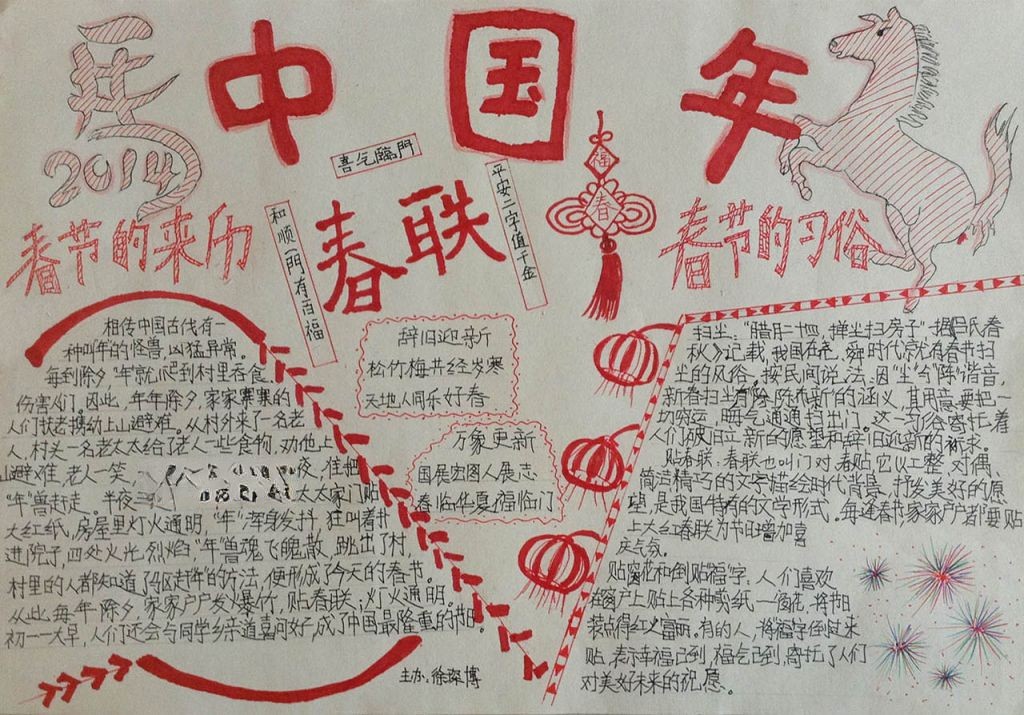 馬
2014
中国年
喜气臨門
和顺一门有百福
平安二字值千金
春联
福
春
春节的来历
春节的习俗
相传中国古代有一
种叫年的怪兽,凶猛异常。
每到除夕"年"就爬到村里吞食
伤害人们。因此,年年除夕,家家寨寨的
人们扶老携幼上山避难。从村外来了一名老
人,村头一名老太太给了老人一些食物,劝他上
山避难,老人一笑,
夜,住把
"年"兽赶走。半夜
太太家门贴
大红纸,房屋里灯火通明,"年"浑身发抖,狂叫着扑
进院子,四处火光,烈焰"年"兽魂飞魄散,跳出了村,
村里的人都知道了驱赶"年"的方法,便形成了今天的春节。
从此,每年除夕,家家户户发爆竹,贴春联;灯火通明。
初一一大早,人们还会与同学乡亲道喜问好,成了中国最隆重的节日。
辞旧迎新
松竹梅共经岁寒
天地人同乐好春
万象更新
国展宏图人展志
春临华夏福临门
主办:徐琛博
扫尘:"腊月二十四,掸尘扫房子",据《吕氏春
秋》记载,我国在尧,舜时代就有春节扫
尘的风俗。按民间说法:因"尘"与"陈"谐音,
新春扫尘有"除陈布新"的涵义,其用意要把一
切穷运,晦气通通扫出门。这一习俗寄托着
人们破旧立新的愿望和辞旧迎新的祈求。
贴春联:春联也叫门对,春贴,它以工整,对偶、
简洁精巧的文字描绘时代背景,抒发美好的愿
望,是我国特有的文学形式。每逢春节,家家户户都要贴
上大红春联为节日增加喜
庆气氛。
贴窗花和倒贴福字:人们喜欢
在窗户上贴上各种剪纸一窗花,将节日
装点得红火富丽。有的人,将福字倒过来
贴,表示幸福已到,福气已到,寄托了人们
对美好未来的祝愿。